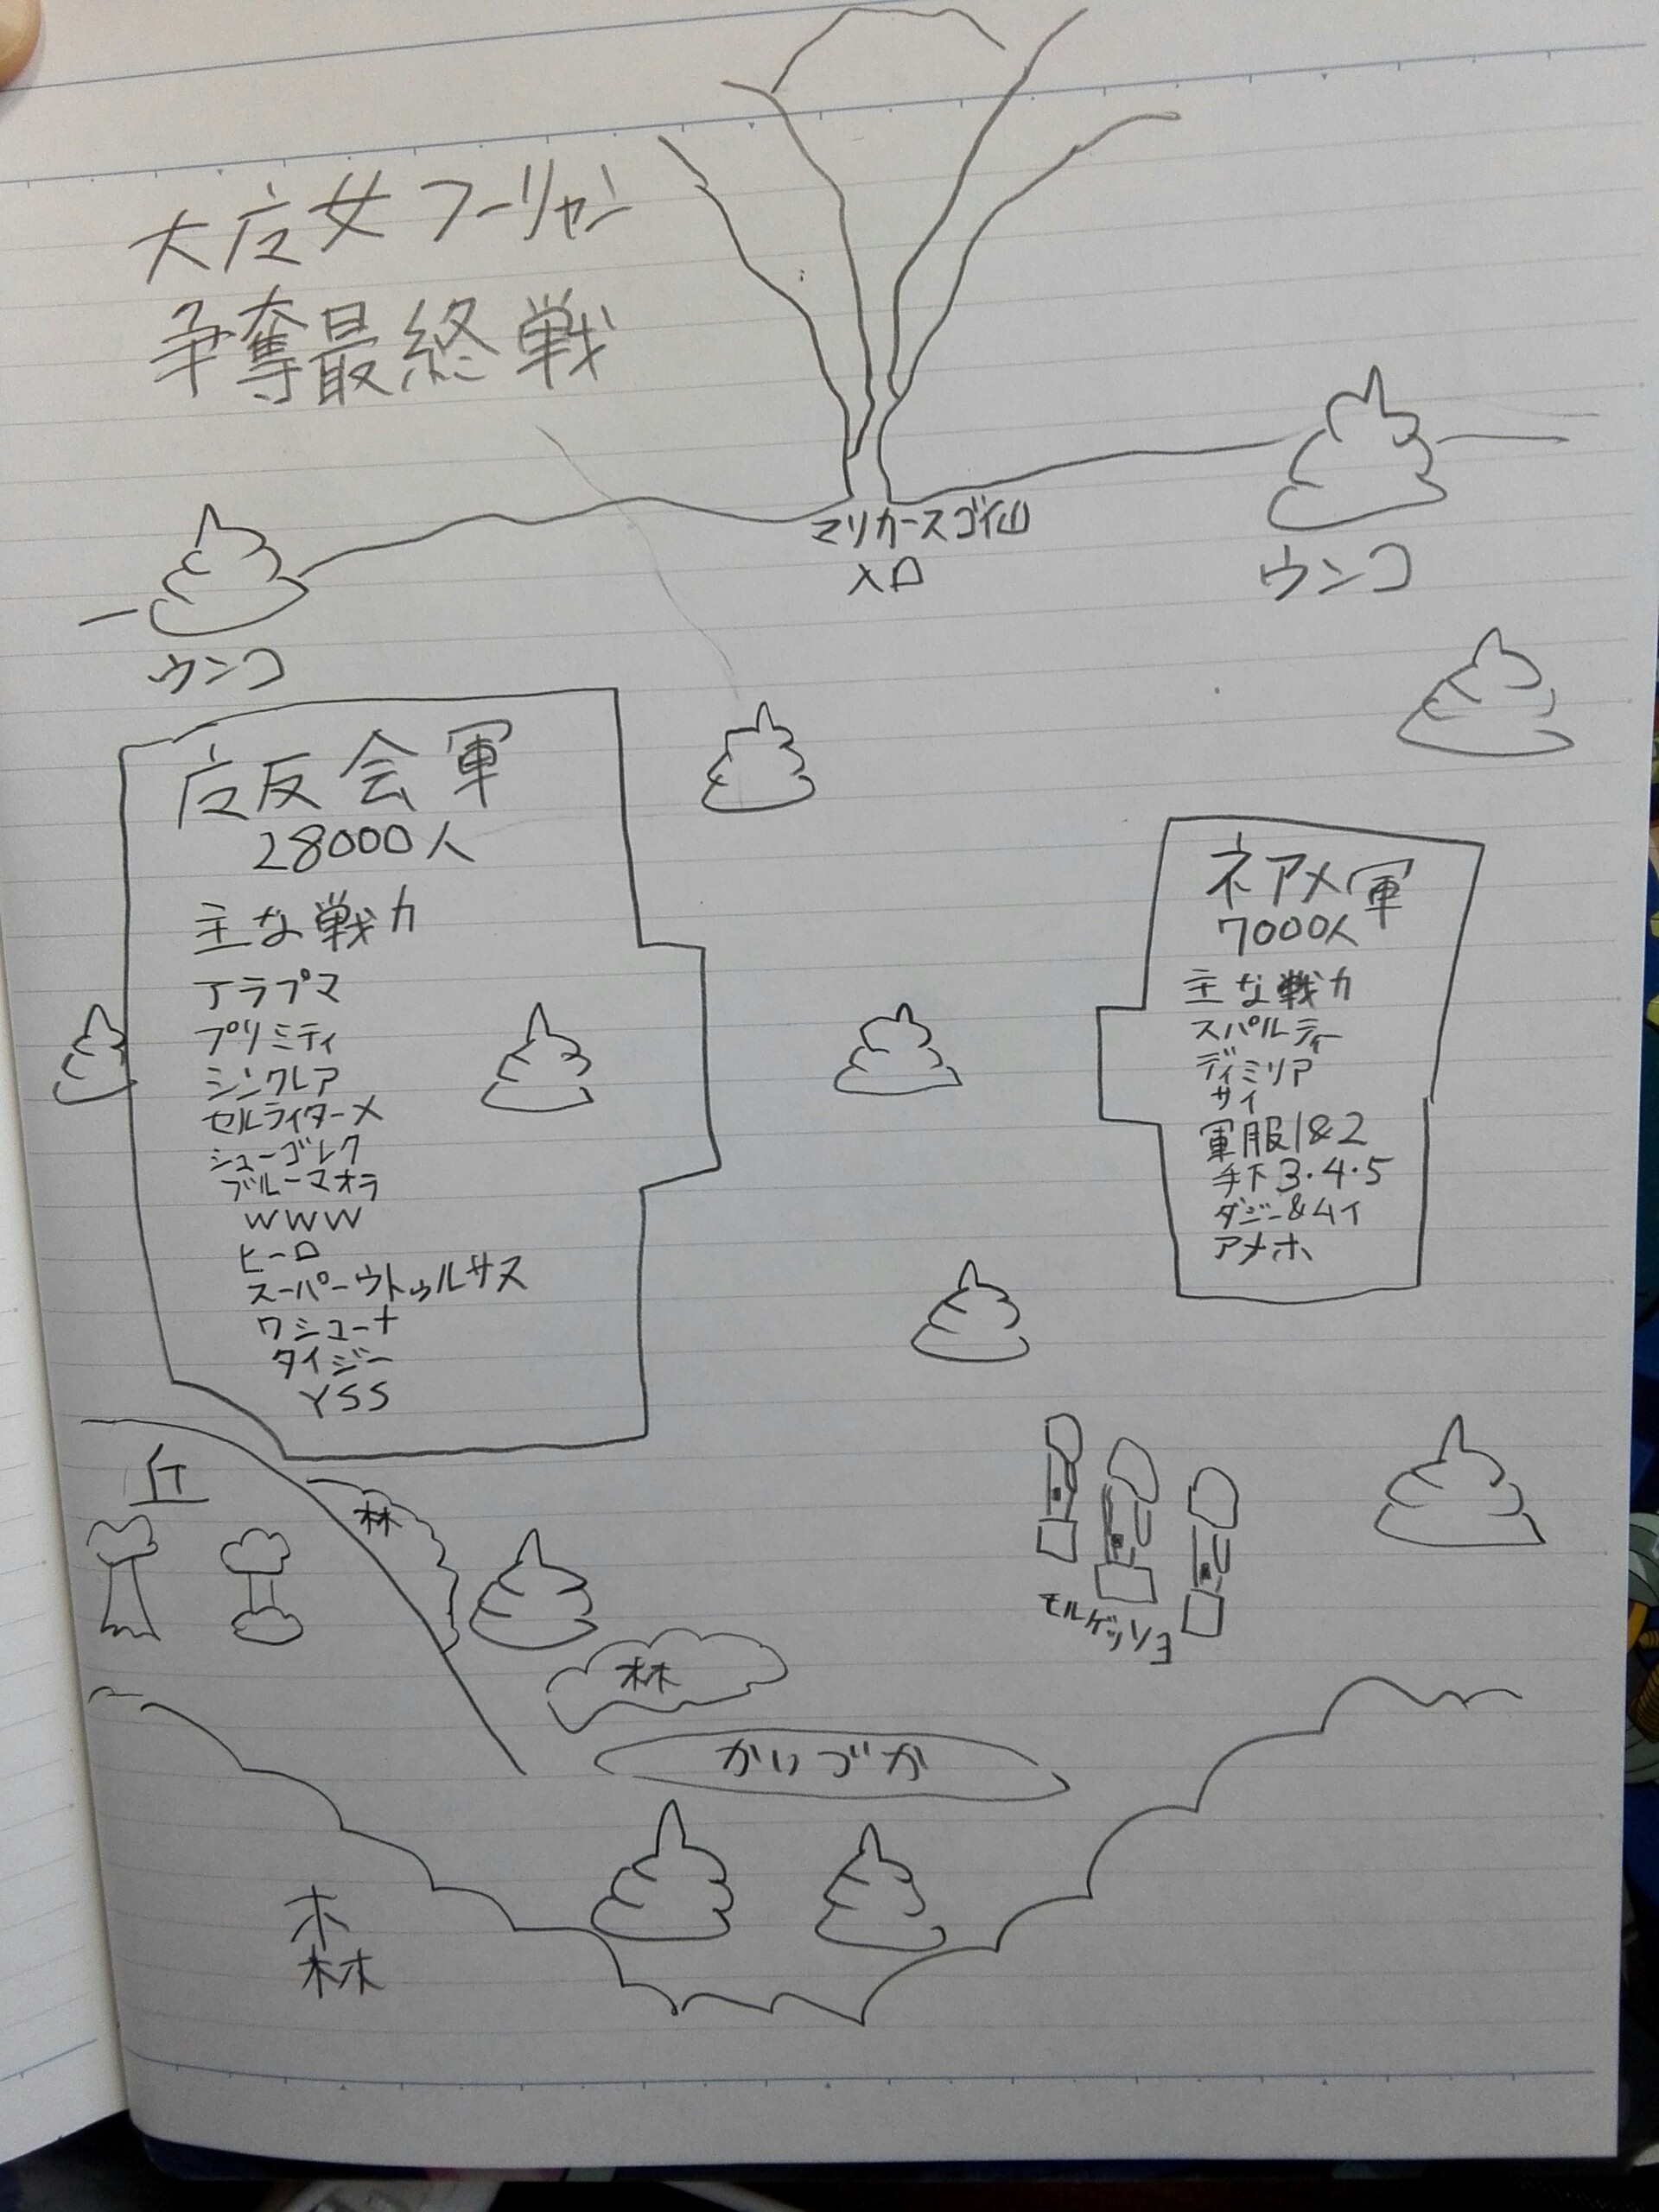 争奪最終戦
マリカースゴイ山
入口
ウンコ
ウンコ
反会軍
28000人
主な戦力
プリミティ
シンクレア
セルライターメ
シューゴレク
ブルーマオラ
WWW
ヒーロ
スーパーウトゥルサス
ワシューナ
タイジー
YSS
ネアメ軍
7000人
主な戦力
スパルティー
ディミリア
サイ
軍服1&2
手下3・4・5
ダジー&ムイ
アメホ
丘
林
林
モルゲッソヨ
かいづか
森